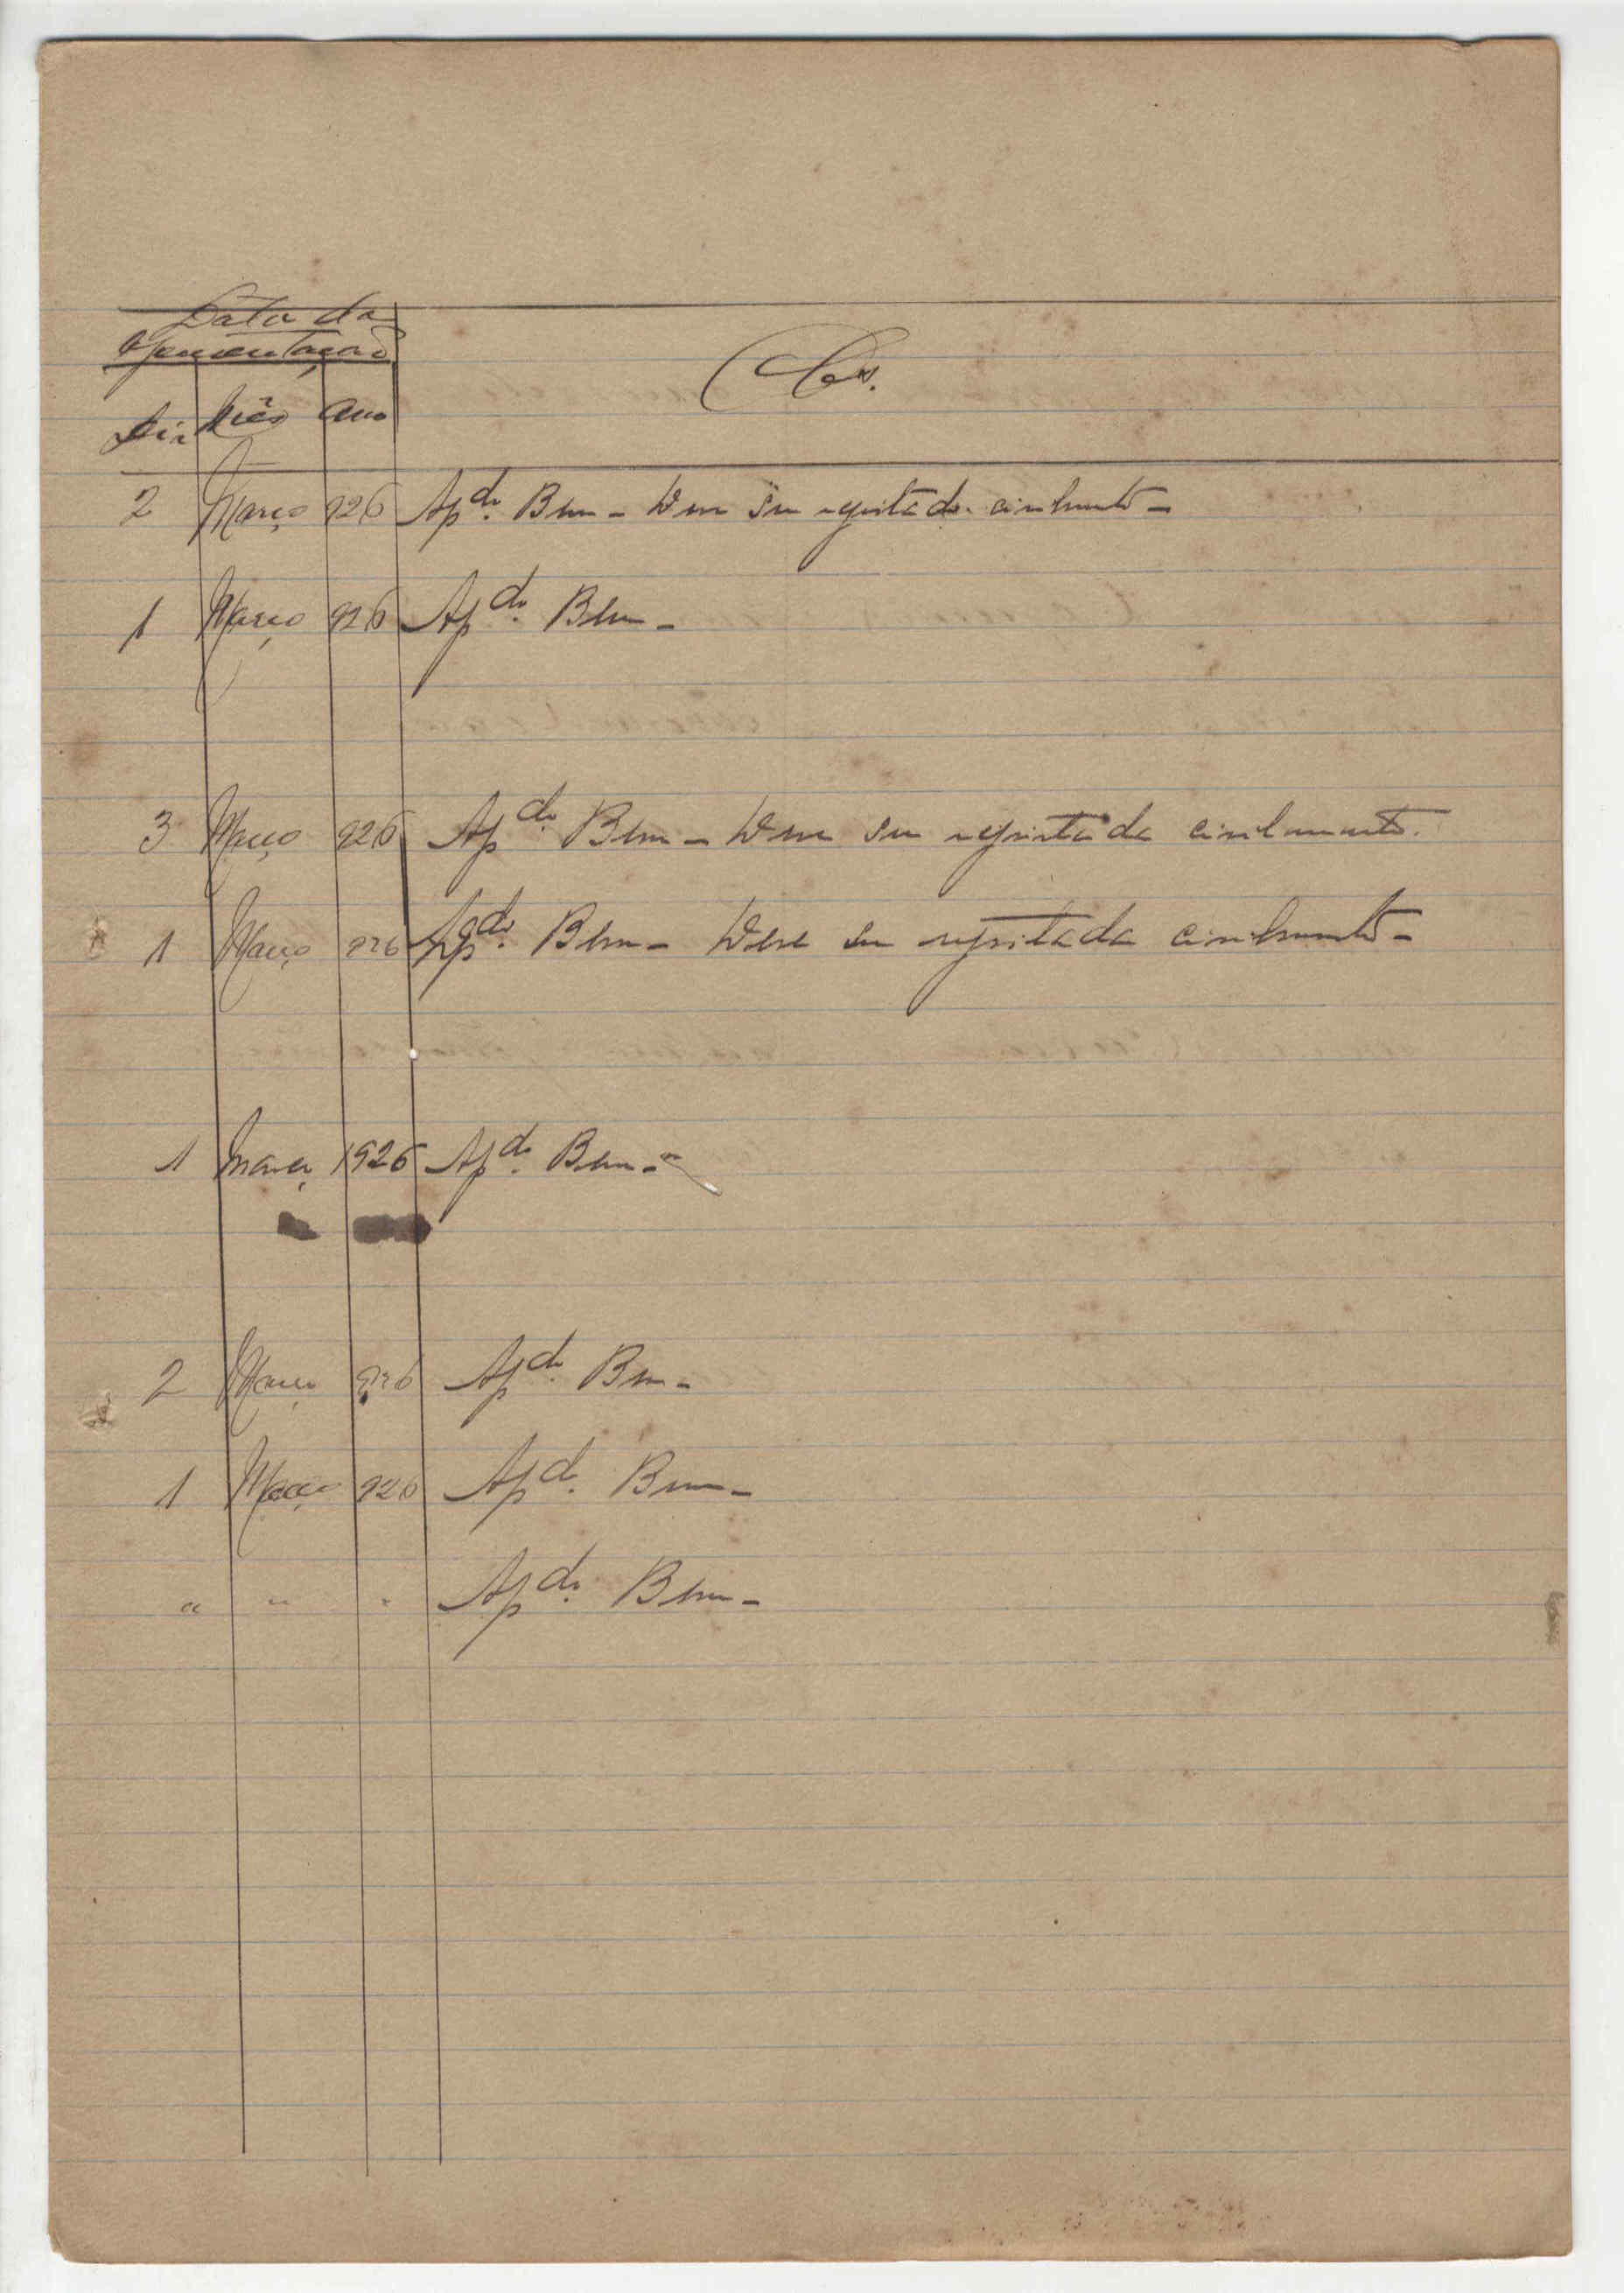 Data da
Apresentação
Dia Mês Ano
Obs.
2 Março 926 Ap.do Bem - Deve ser registado civilmente -
1 Março 926 Ap.do Bem -
3 Março 926 Ap.do Bem - Deve ser registada civilmente.
1 Março 926 Ap.do Bem - Deve ser registada civilmente -
1 Março 1926 Ap.do Bem -
2 Março 926 Ap.do Bem -
1 Março 926 Ap.do Bem -
" " " Ap.do Bem -